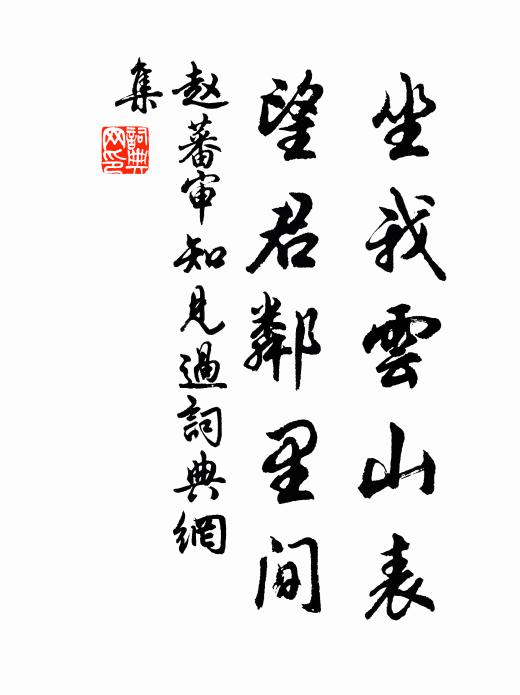 坐我雲山表
望君鄰里間
赵蕃审知見過詞典網
集
詞典
网印